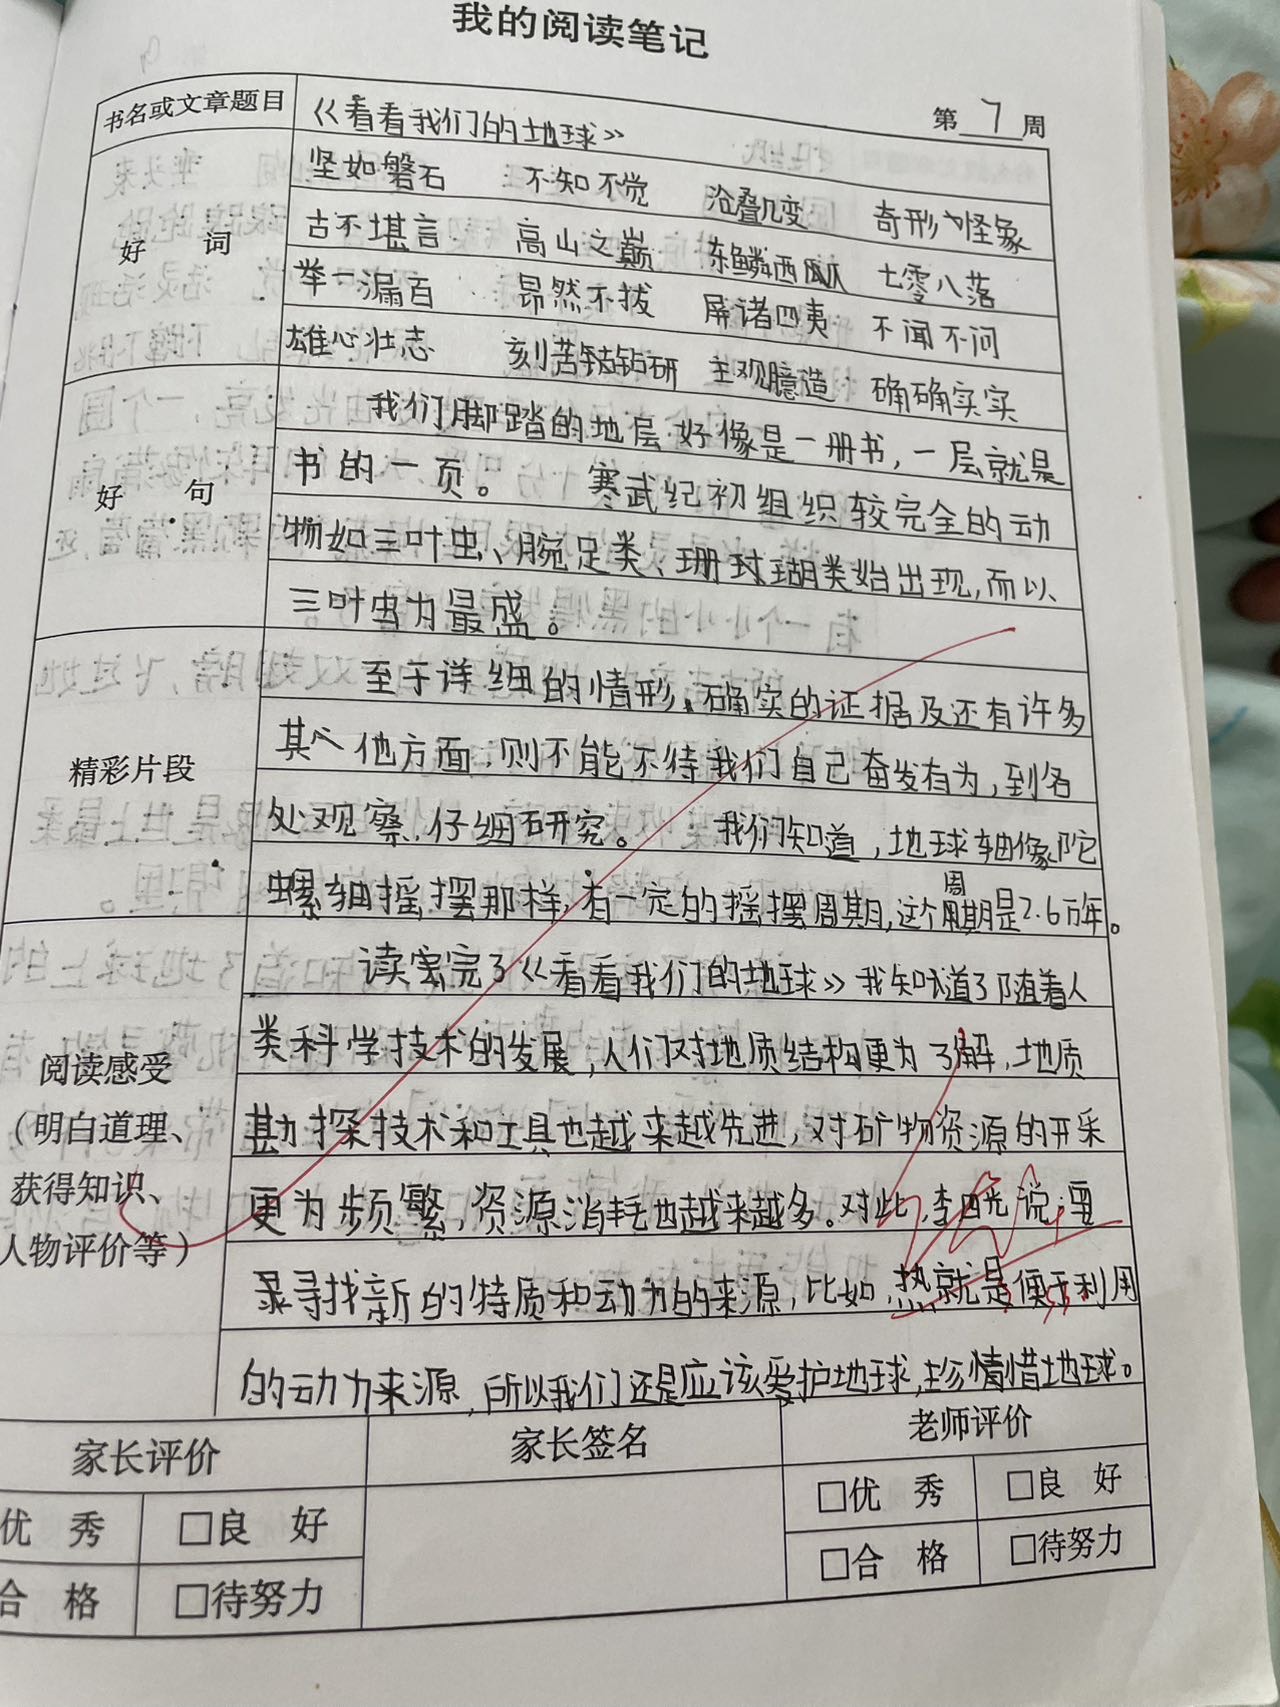 我的阅读笔记
书名或文章题目 《看看我们的地球》 第 7 周
好 词
坚如磐石 不知不觉 沧叠几变 奇形怪象
古不堪言 高山之巅 东鳞西爪 七零八落
举一漏百 昂然不拔 屏诸四夷 不闻不问
雄心壮志 刻苦钻研 主观臆造 确确实实
好 句
我们脚踏的地层好像是一册书，一层就是
书的一页。 寒武纪初组织较完全的动
物如三叶虫、腕足类、珊瑚类始出现，而以
三叶虫为最盛。
精彩片段
至于详细的情形，确实的证据及还有许多
其他方面，则不能不待我们自己奋发有为，到各
处观察，仔细研究。 我们知道，地球轴像陀
螺轴摇摆那样，有一定的摇摆周期，这个周期是2.6万年。
阅读感受
（明白道理、
获得知识、
人物评价等）
读完了《看看我们的地球》我知道了随着人
类科学技术的发展，人们对地质结构更为了解，地质
勘探技术和工具也越来越先进，对矿物资源的开采
更为频繁，资源消耗也越来越多。对此，李四光说：要
寻找新的特质和动力的来源，比如，热就是便于利用
的动力来源，所以我们还是应该爱护地球，珍惜地球。
家长评价 家长签名 老师评价
优 秀 □良 好 □优 秀 □良 好
合 格 □待努力 □合 格 □待努力